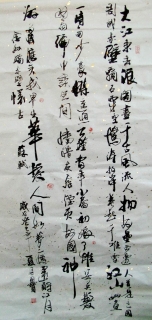 大江东去浪淘尽千古风流人物故垒西边人道是三国
周郎赤壁乱石穿空惊涛拍岸卷起千堆雪江山如画
一时多少豪杰遥想公瑾当年小乔初嫁了雄姿英发
羽扇纶巾谈笑间樯橹灰飞烟灭故国神
游多情应笑我早生华发人间如梦一尊还酹江月
念奴娇赤壁怀古
苏轼